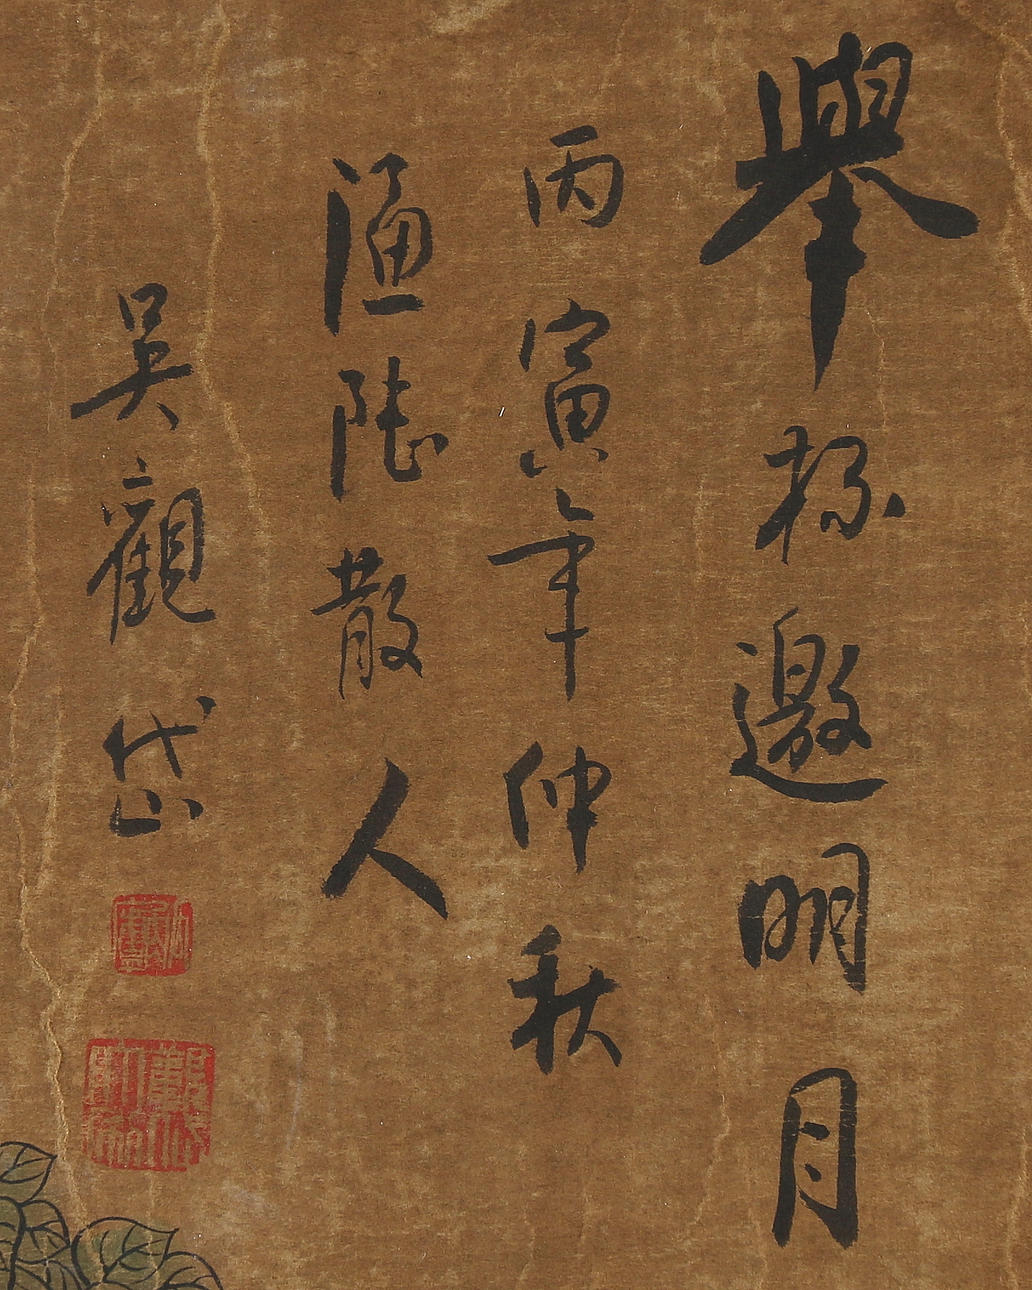 舉杯邀明月
丙寅年仲秋
漁陸散人
吳觀岱